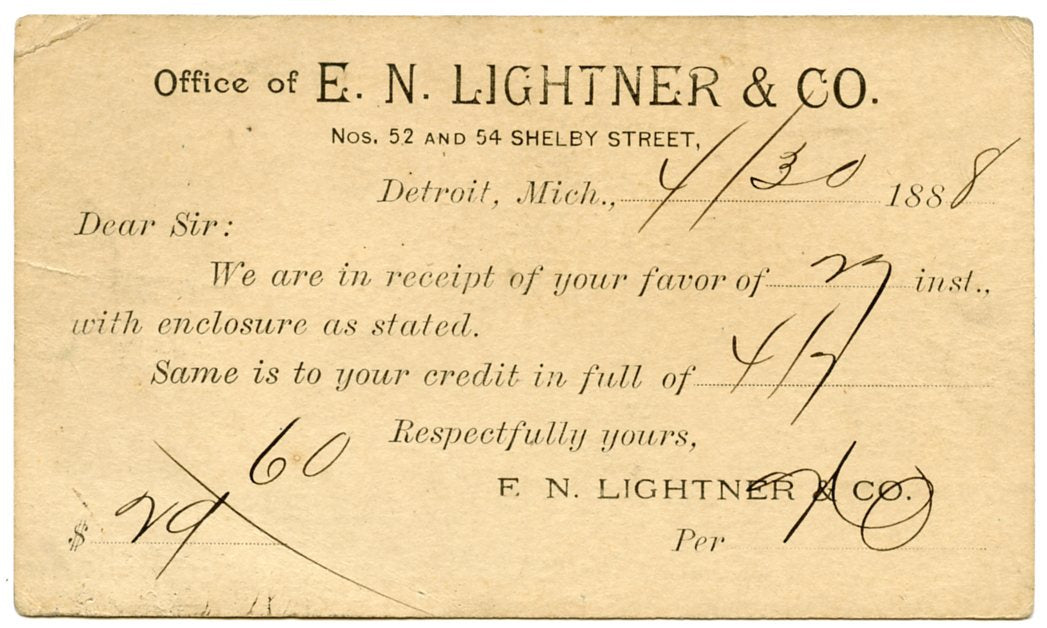 Office of E. N. LIGHTNER & CO.
Nos. 52 AND 54 SHELBY STREET,
Detroit, Mich., 4/30 1888
Dear Sir:
We are in receipt of your favor of 27 inst.,
with enclosure as stated.
Same is to your credit in full of 4/7
Respectfully yours,
E. N. LIGHTNER & CO.
$ 29 60
Per